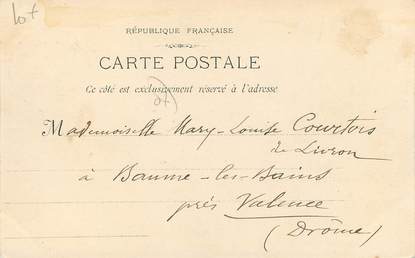 lot
RÉPUBLIQUE FRANÇAISE
CARTE POSTALE
Ce côté est exclusivement réservé à l'adresse
Mademoiselle Mary-Louise Courtois
de Livron
à Baume-les-Bains
prés Valence
(Drôme)